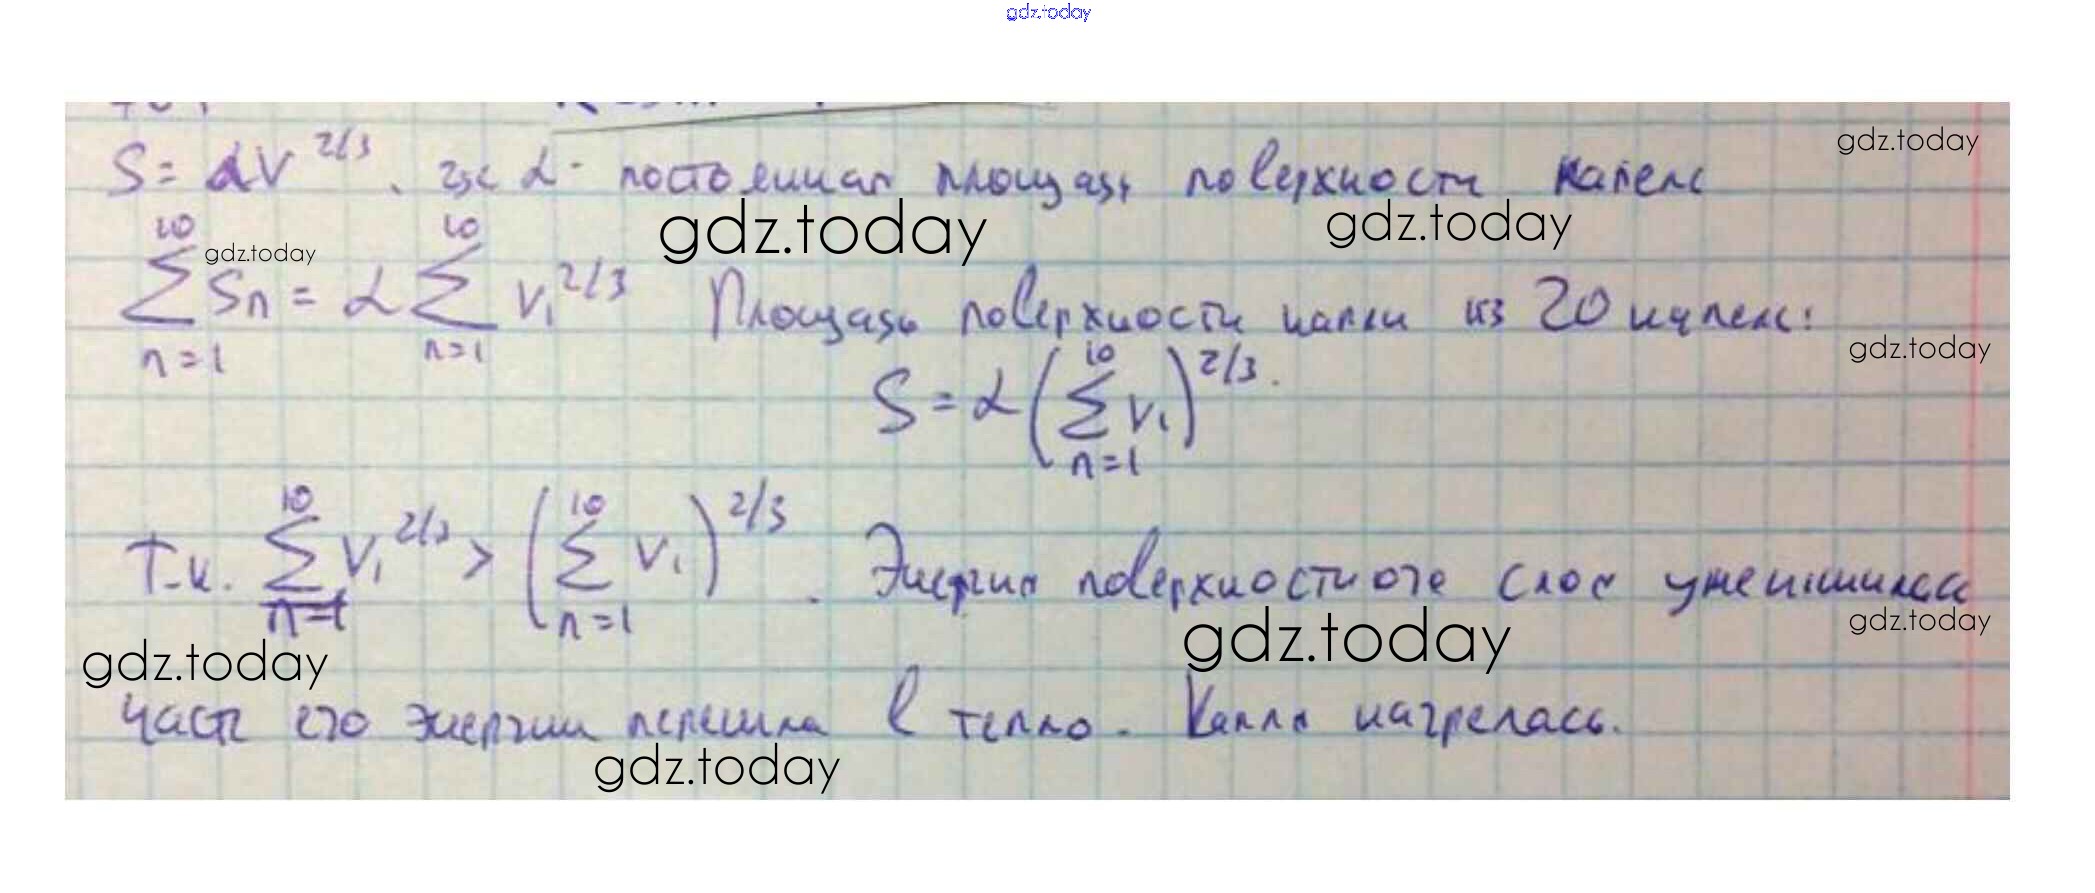 gdz.today
S = αV^2/3, где α - постоянная площадь поверхности капель
gdz.today
∑(n=1..10) Sn = α ∑(n=1..10) V₁^2/3 Площадь поверхности капли из 20 капель:
gdz.today
gdz.today
gdz.today
S = α(∑(n=1..10) V₁)^2/3.
gdz.today
Т.к. ∑(n=1..10) V₁^2/3 > (∑(n=1..10) V₁)^2/3. Энергия поверхностного слоя уменьшилась
gdz.today
gdz.today
gdz.today
часть его энергии перешла в тепло. Капля нагрелась.
gdz.today